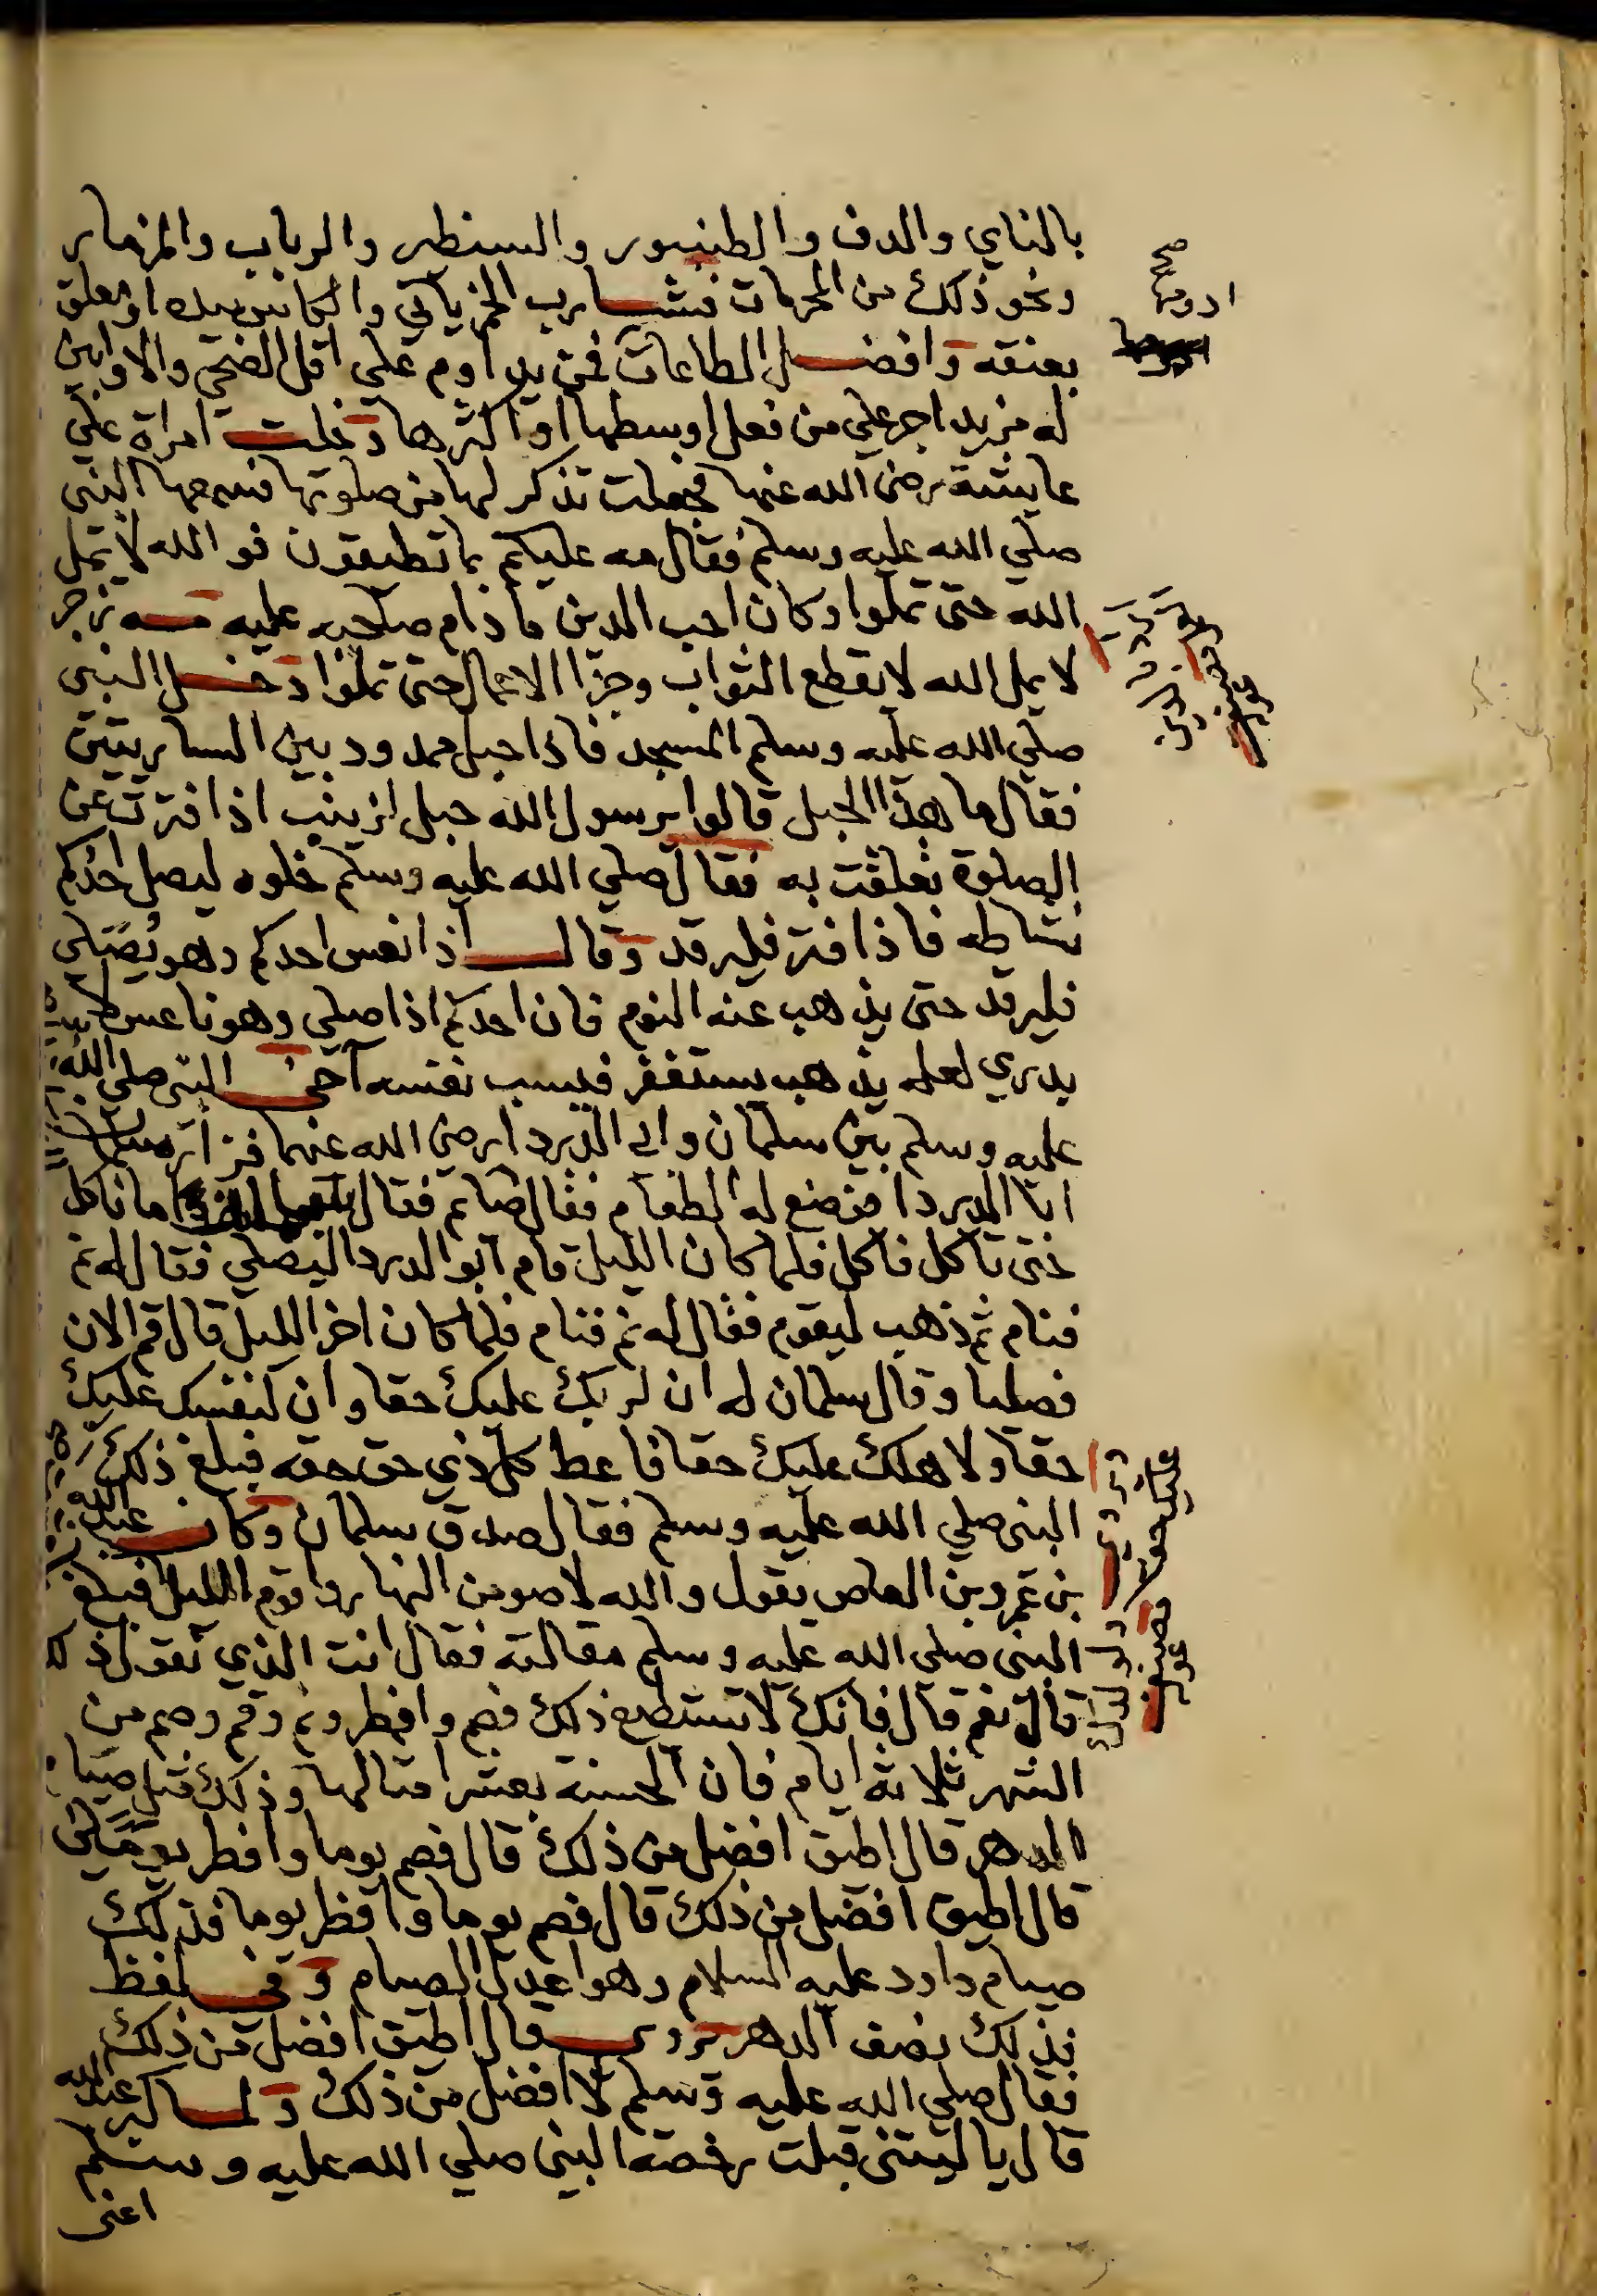 بالناي والدف والطنبور والسنطير والرباب والمزمار
ونحو ذلك من المحرمات فشارب الخمر ياتي والكاس بيده او معلق
بعنقه وافضل الطاعات فمن يداوم علي اقل الضحي والاوابين
له مزيد اجر علي من فعل اوسطها او اكثرها دخلت امراة علي
عايشة رضي الله عنها فجعلت تذكر لها من صلوتها فسمعها النبي
صلي الله عليه وسلم فقال مه عليكم بما تطيقون فوالله لا يمل
الله حتي تملوا وكان احب الدين ما دام صاحبه عليه مه زجر
لا يمل الله لا يقطع الثواب وجزا الاعمال حتي تملوا دخل النبي
صلي الله عليه وسلم المسجد فاذا حبل ممدود بين الساريتين
فقال ما هذا الحبل قالوا يرسول الله حبل لزينب اذا فترت عن
الصلوة تعلقت به فقال صلي الله عليه وسلم خلوه ليصل احدكم
نشاطه فاذا فتر فليرقد وقال اذا نعس احدكم وهو يصلي
فليرقد حتي يذهب عنه النوم فان احدكم اذا صلي وهو ناعس لا
يدري لعله يذهب يستغفر فيسب نفسه آخي النبي صلي الله
عليه وسلم بين سلمان وابي الدردا رضي الله عنهما فزار سلمان
ابا الدردا فصنع له الطعام فقال صائم فقال ما ناكل
حتي تاكل فاكل فلما كان الليل قام ابو الدردا ليصلي فقال له نم
فنام ثم ذهب ليقوم فقال له نم فنام فلما كان اخر الليل قال قم الان
فصليا وقال سلمان له ان لربك عليك حقا وان لنفسك عليك
حقا ولاهلك عليك حقا فاعط كل ذي حق حقه فبلغ ذلك
النبي صلي الله عليه وسلم فقال صدق سلمان وكان عبد الله
بن عمرو بن العاص يقول والله لاصومن النهار واقوم الليل فبلغ
النبي صلي الله عليه وسلم مقالته فقال انت الذي تقول ذلك
قال نعم قال فانك لا تستطيع ذلك فصم وافطر ونم وقم وصم من
الشهر ثلاثة ايام فان الحسنة بعشر امثالها وذلك مثل صيام
الدهر قال اطيق افضل من ذلك قال فصم يوما وافطر يومين
قال اطيق افضل من ذلك قال فصم يوما وافطر يوما فذلك
صيام داود عليه السلام وهو اعدل الصيام وفي لفظ
فذلك نصف الدهر قال اطيق افضل من ذلك
فقال صلي الله عليه وسلم لا افضل من ذلك ولما كبر عبد الله
قال يا ليتني قبلت رخصة النبي صلي الله عليه وسلم
اعني
صح
ادومها